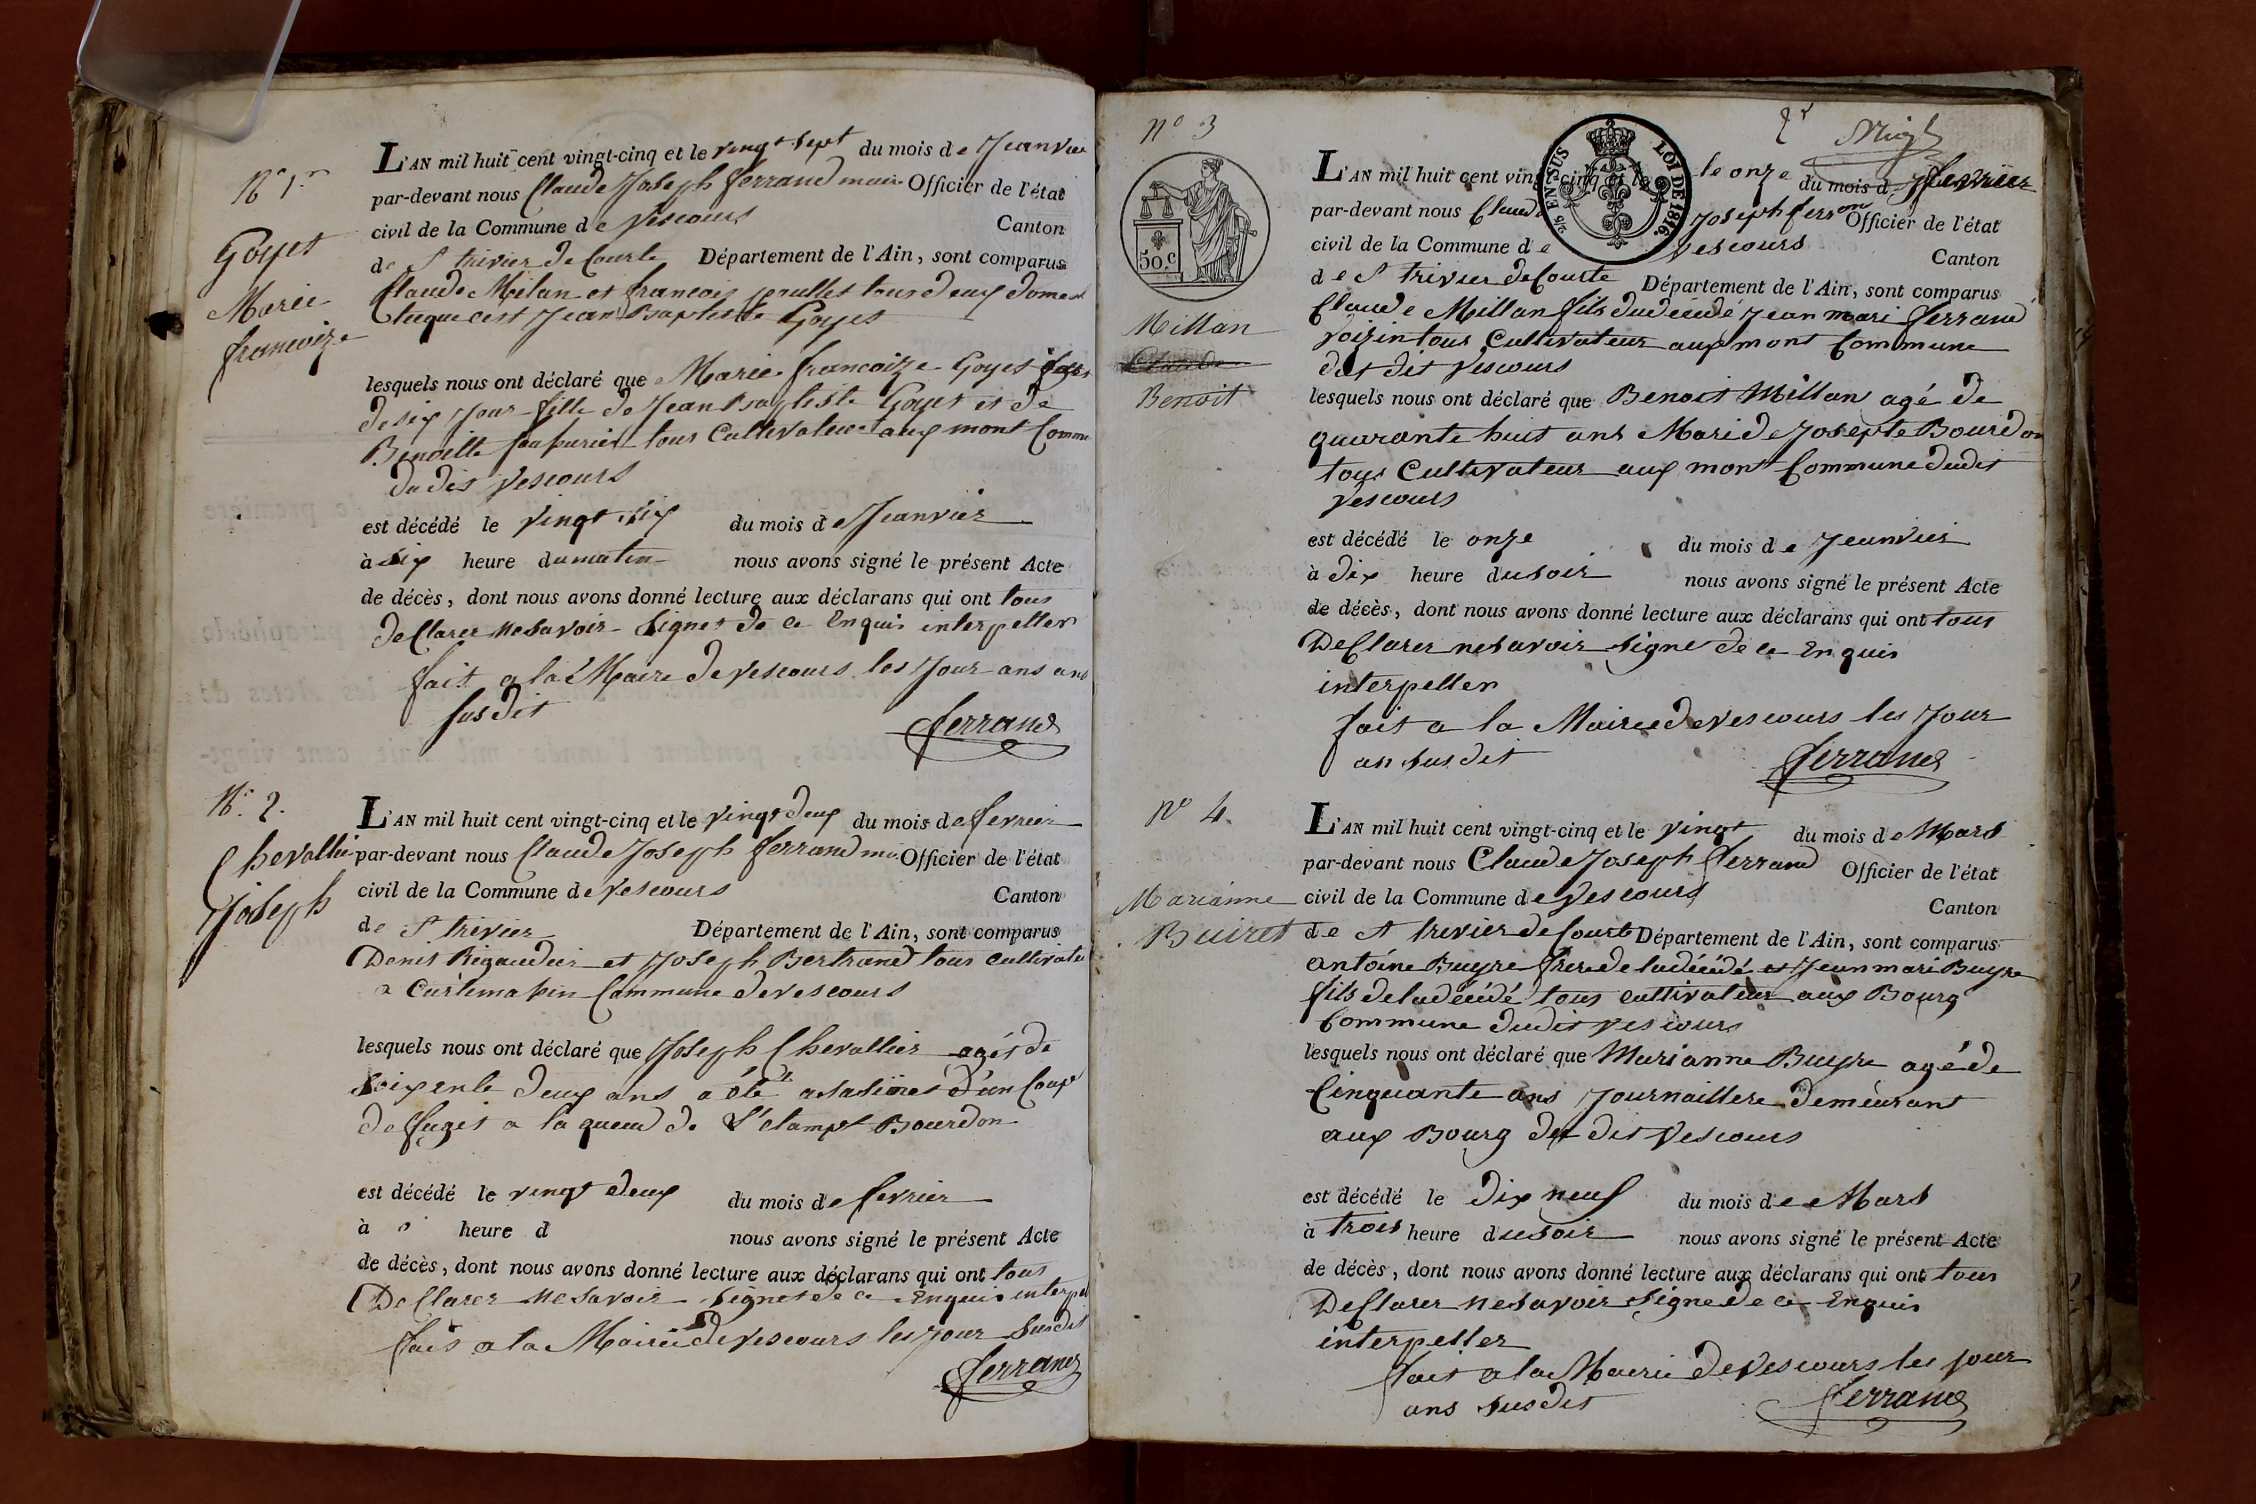 N° 1er
Goyet
Marie
francoize
L'AN mil huit cent vingt-cinq et le vingt sept du mois de Jeanvier
par-devant nous Claude Joseph ferrand maire Officier de l'état
civil de la Commune de Vescours Canton
de St trivier de Courte Département de l'Ain, sont comparus
Claude Milan et francois tous deux domes
tique cest Jean Baptiste Goyet
lesquels nous ont déclaré que Marie francoize Goyet
de six Jour fille de Jean Baptiste Goyet et de
Benoitte tous Cultivateur aux mont Commu
du dit Vescours
est décédé le vingt six du mois de Jeanvier
à six heure du matin nous avons signé le présent Acte
de décès, dont nous avons donné lecture aux déclarans qui ont tous
de Clarer ne savoir Signer de ce Enquis interpeller
fait a la Maire de Vescours les Jour ans
susdit
ferrand
N° 2.
Chevallier
Joseph
L'AN mil huit cent vingt-cinq et le vingt deux du mois de fevrier
par-devant nous Claude Joseph ferrand Officier de l'état
civil de la Commune de Vescours Canton
de St trivier Département de l'Ain, sont comparus
Denis Rigaudier et Joseph Bertrand tous cultivate
a Commune de Vescours
lesquels nous ont déclaré que Joseph Chevallier agés de
soixente deux ans a été asasiner d'un Coup
de fuget a la queu de L'etampt Bourdon
est décédé le vingt deux du mois de fevrier
à heure d nous avons signé le présent Acte
de décès, dont nous avons donné lecture aux déclarans qui ont tous
De Clarer ne savoir signer de ce Enquis interpel
fais a la Mairie de Vescours les Jour Susdit
ferrand
N° 3
50.c
Millan
Benoit
2r
25 EN SUS LOI DE 1816.
L'AN mil huit cent vingt-cinq et le le onze du mois de fevrier
par-devant nous Claude Joseph ferron Officier de l'état
civil de la Commune de Vescours Canton
de St trivier de Courte Département de l'Ain, sont comparus
Claude Millan fils du décédé Jean mari ferrand
voizin tous Cultivateur aux mont Commune
du dit Vescours
lesquels nous ont déclaré que Benoit Millan agé de
quarante huit ans Mari de Josepte Bourdon
tous Cultivateur aux mont Commune dudit
Vescours
est décédé le onze du mois de Jeanvier
à dix heure du soir nous avons signé le présent Acte
de décès, dont nous avons donné lecture aux déclarans qui ont tous
De Clarer ne savoir Signe de ce Enquis
interpeller
fait a la Mairie de Vescours les Jour
an susdit
ferrand
N° 4.
Marianne
Buiret
L'AN mil huit cent vingt-cinq et le vingt du mois de Mars
par-devant nous Claude Joseph ferrand Officier de l'état
civil de la Commune de Vescours Canton
de St trivier de Courte Département de l'Ain, sont comparus
antoine Buyre frere de la décédé et Jean mari Buyre
fils de la décédé tous cultivateur aux Bourg
Commune dudit Vescours
lesquels nous ont déclaré que Marianne Buyre agé de
Cinquante ans Journaillere demeurant
aux Bourg du dit Vescours
est décédé le dix neuf du mois de Mars
à trois heure du soir nous avons signé le présent Acte
de décès, dont nous avons donné lecture aux déclarans qui ont tous
De Clarer ne savoir Signe de ce Enquis
interpeller
fait a la Mairie de Vescours les jour
ans susdit
ferrand